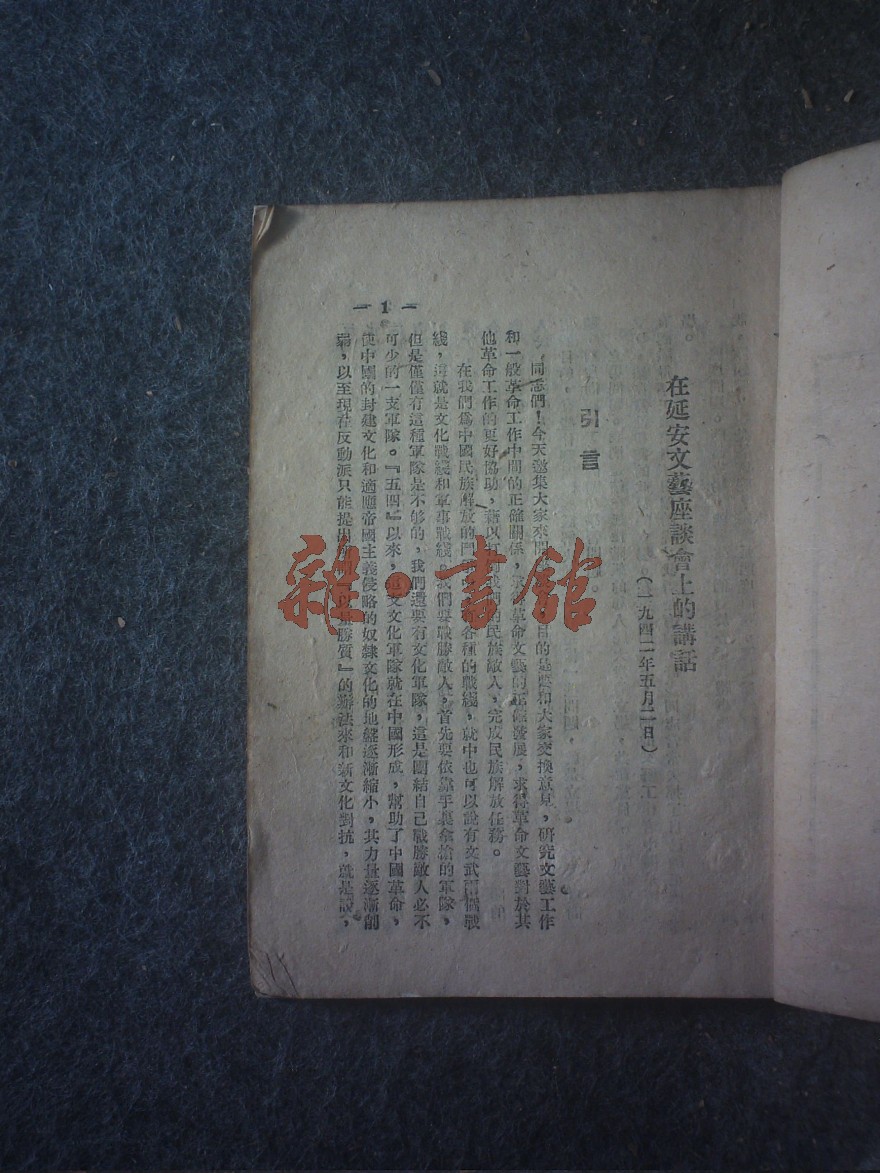 在延安文藝座談會上的講話
(一九四二年五月二日)
引言
同志們!今天邀集大家來開 目的是要和大家交換意見,研究文藝工作
和一般革命工作中間的正確關係, 革命文藝的正確發展,求得革命文藝對於其
他革命工作的更好協助,藉以打 我們的民族敵人,完成民族解放任務。
在我們爲中國民族解放的鬥 各種的戰綫,就中也可以說有文武兩個戰
綫,這就是文化戰綫和軍事戰綫。我們要戰勝敵人,首先要依靠手裏拿槍的軍隊,
但是僅僅有這種軍隊是不够的,我們還要有文化軍隊,這是團結自己戰勝敵人必不
可少的一支軍隊。『五四』以來,這支文化軍隊就在中國形成,幫助了中國革命,
使中國的封建文化和適應帝國主義侵略的奴隸文化的地盤逐漸縮小,其力量逐漸削
弱,以至現在反動派只能提出所謂『以量勝質』的辦法來和新文化對抗,就是說,
— 1 —
雜·書館